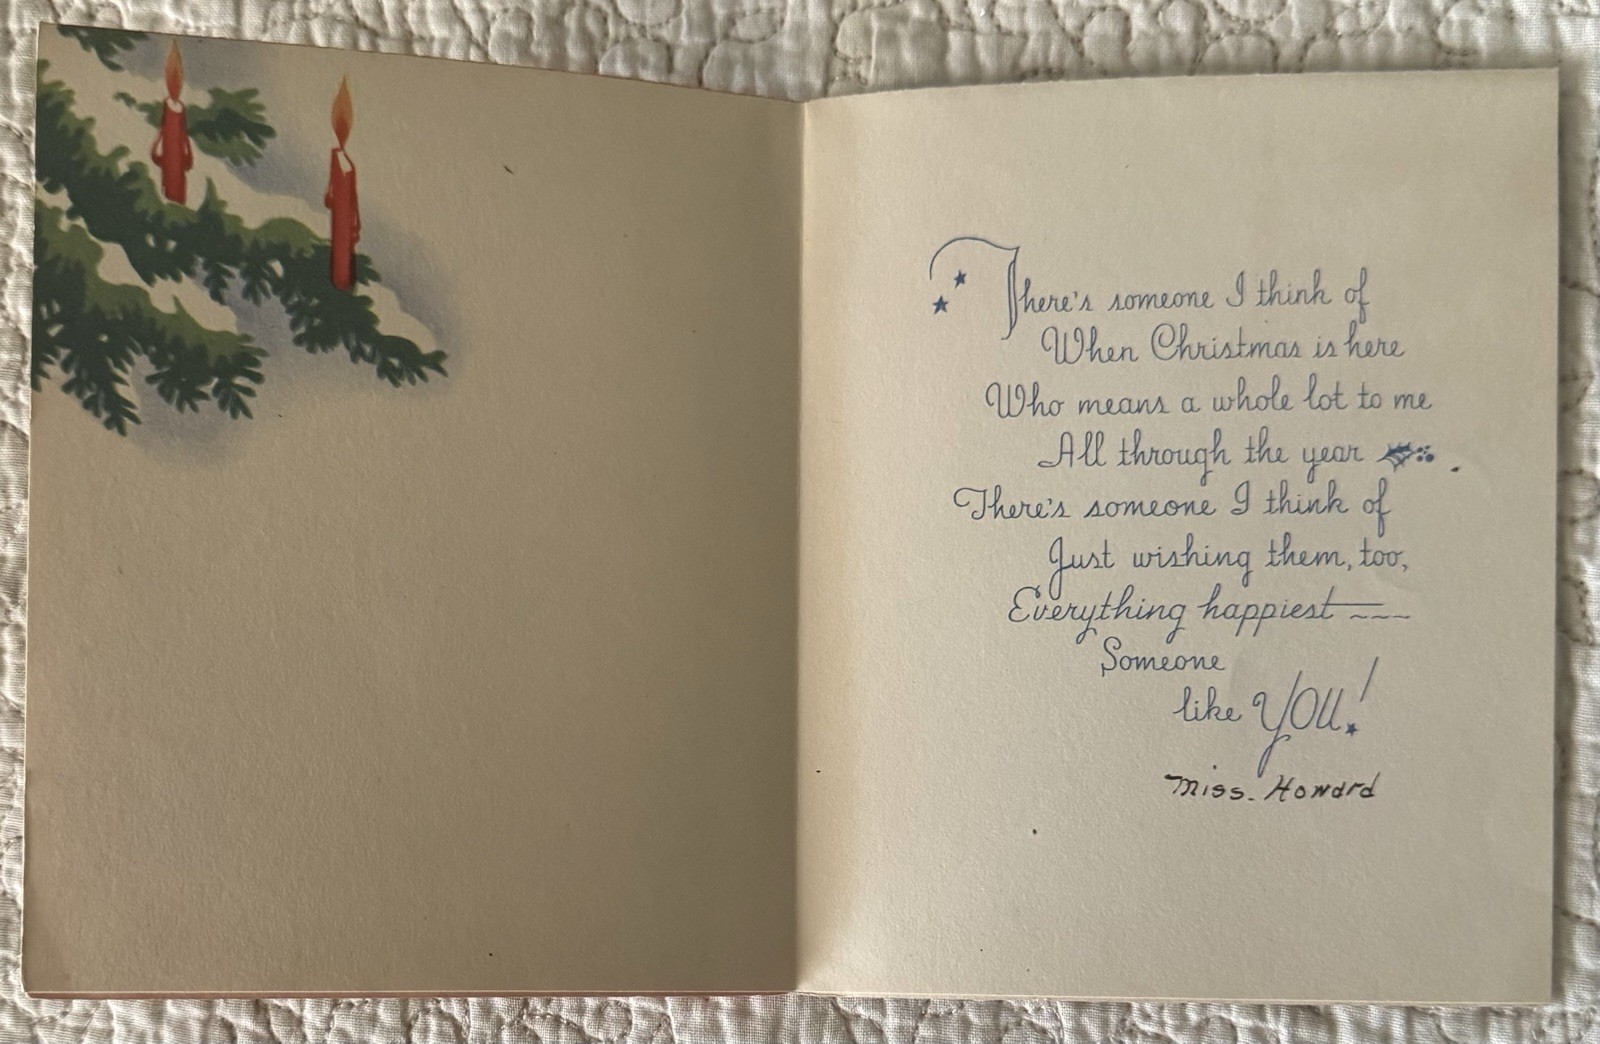 There's someone I think of
When Christmas is here
Who means a whole lot to me
All through the year
There's someone I think of
Just wishing them, too,
Everything happiest ~~~
Someone
like YOU!
Miss. Howard